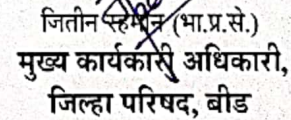 जितीन रहमान (भा.प्र.से.)
मुख्य कार्यकारी अधिकारी,
जिल्हा परिषद, बीड